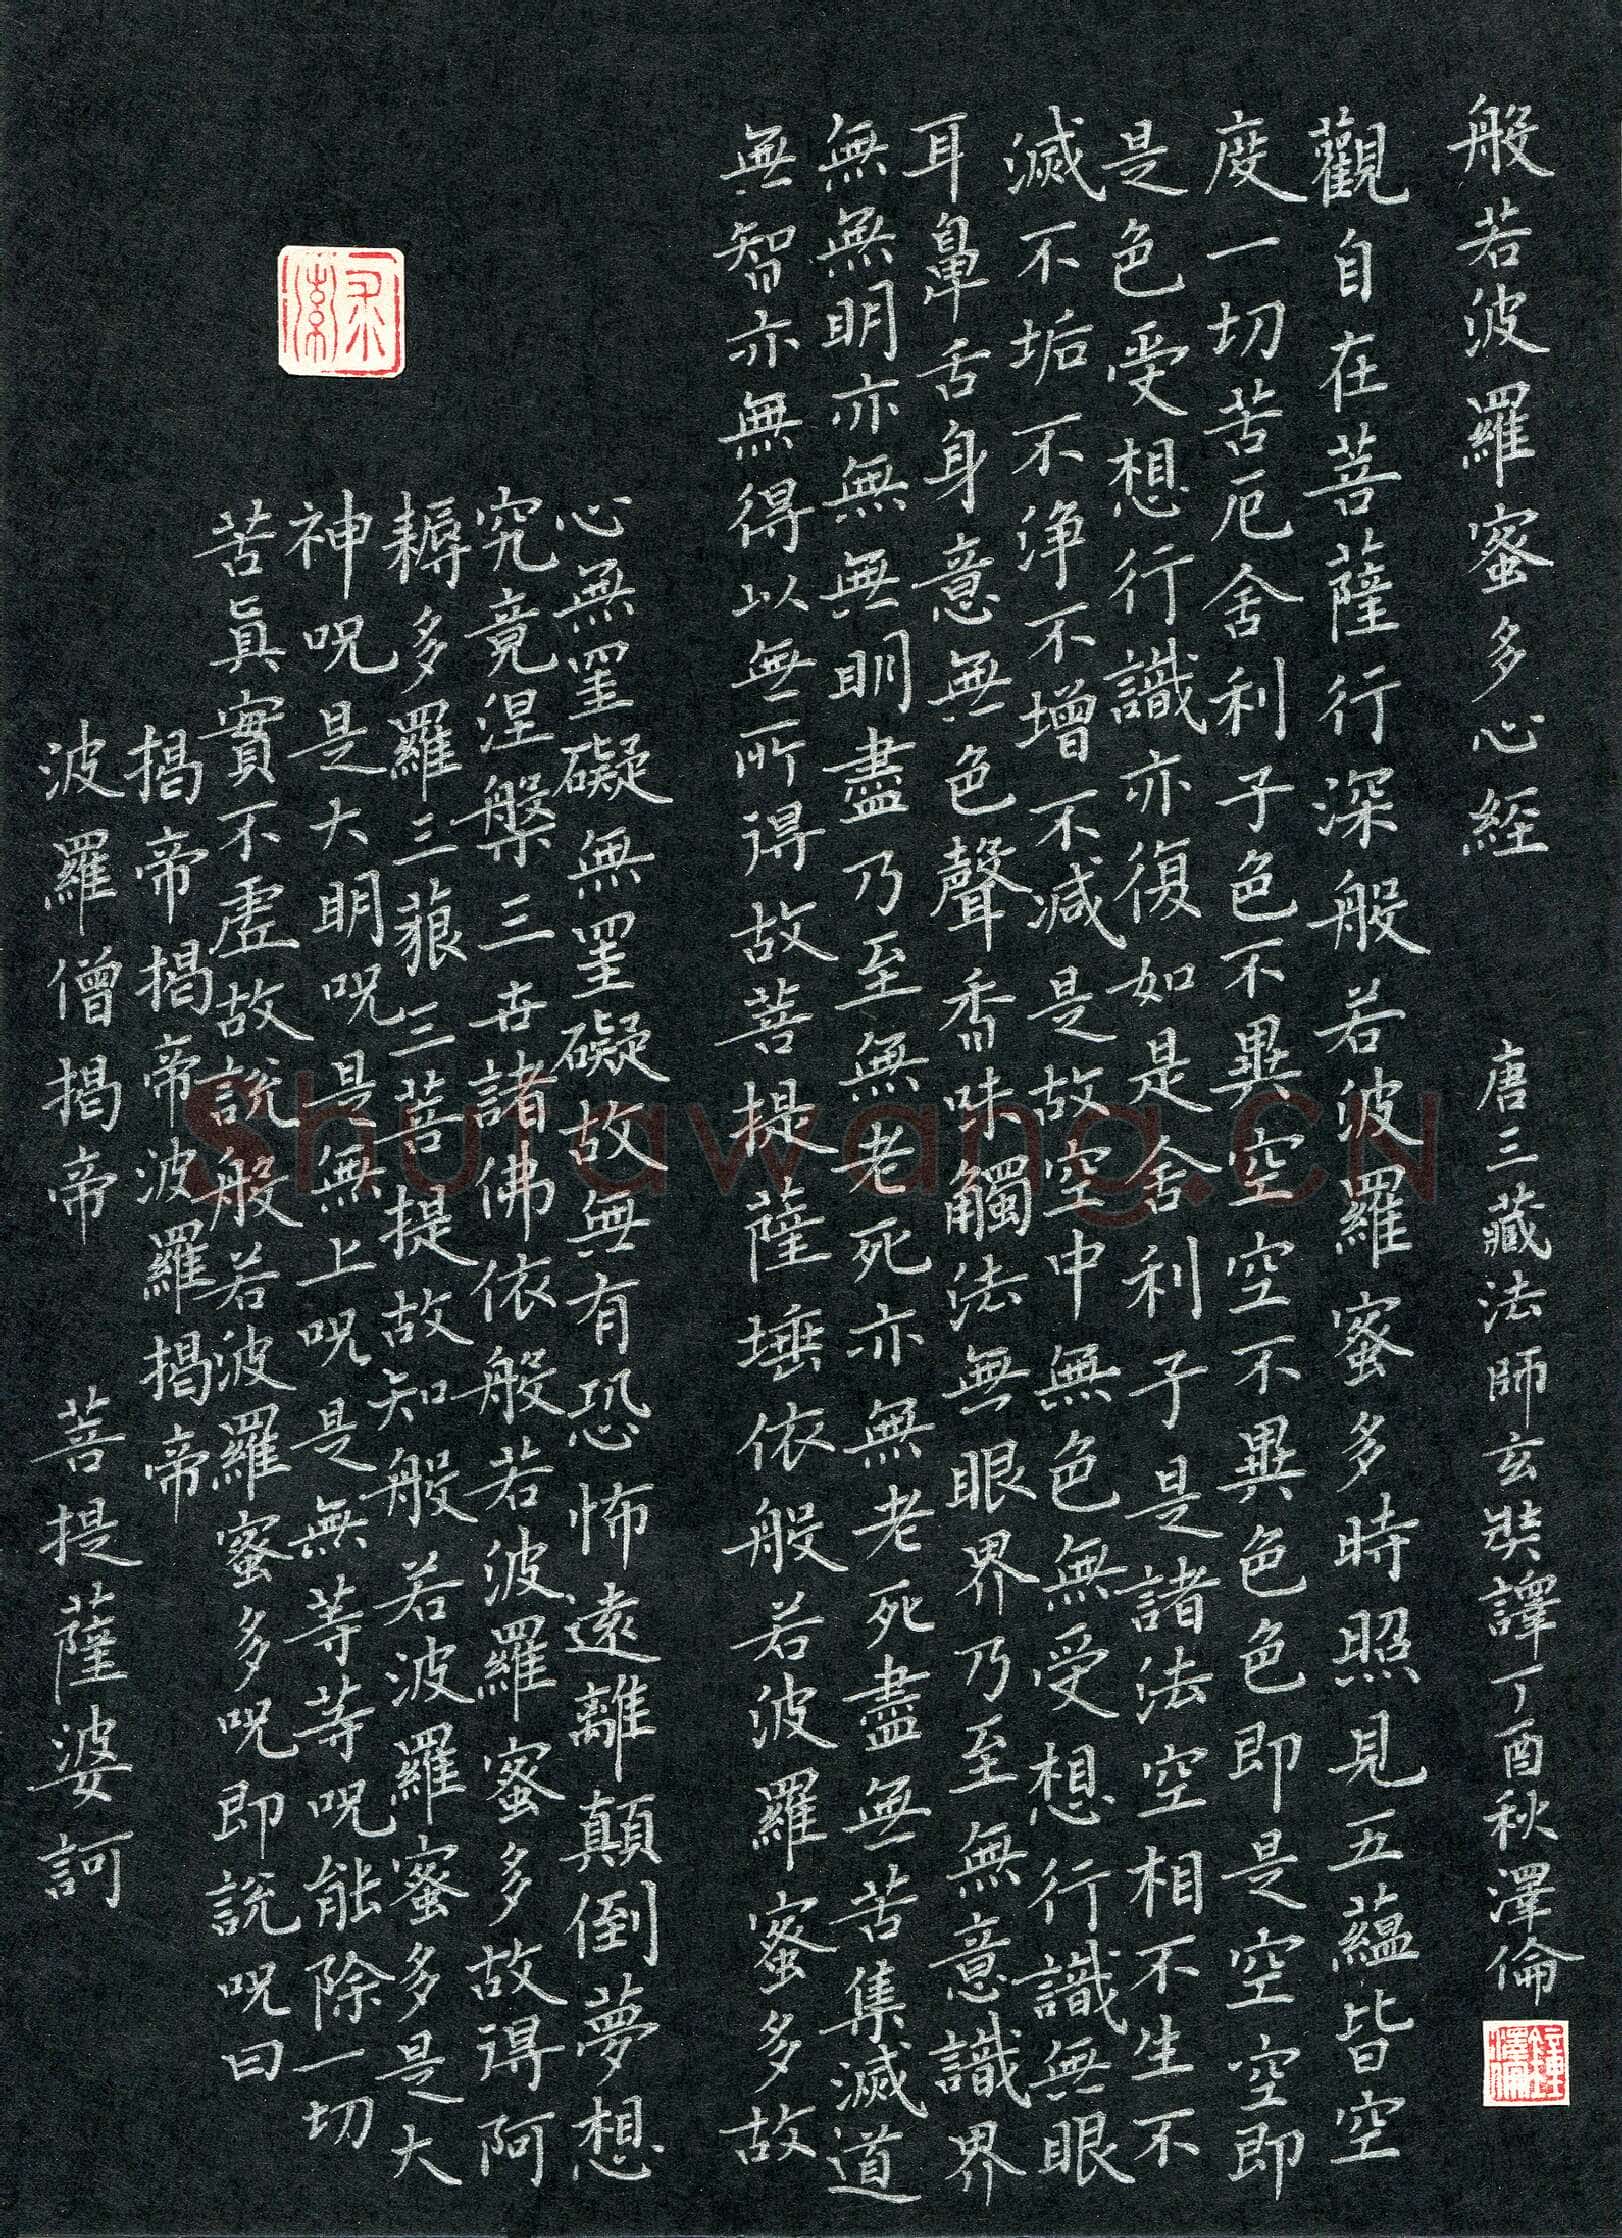 般若波羅蜜多心經 唐三藏法師玄奘譯丁酉秋澤倫
鍾澤倫
觀自在菩薩行深般若波羅蜜多時照見五蘊皆空
度一切苦厄舍利子色不異空空不異色色即是空空即
是色受想行識亦復如是舍利子是諸法空相不生不
滅不垢不净不增不减是故空中無色無受想行識無眼
耳鼻舌身意無色聲香味觸法無眼界乃至無意識界
無無明亦無無明盡乃至無老死亦無老死盡無苦集滅道
無智亦無得以無所得故菩提薩埵依般若波羅蜜多故
心無罣礙無罣礙故無有恐怖遠離顛倒夢想
究竟涅槃三世諸佛依般若波羅蜜多故得阿
耨多羅三藐三菩提故知般若波羅蜜多是大
神呪是大明呪是無上呪是無等等呪能除一切
苦眞實不虛故說般若波羅蜜多呪即說呪曰
揭帝揭帝波羅揭帝
波羅僧揭帝 菩提薩婆訶
Shufawang.CN